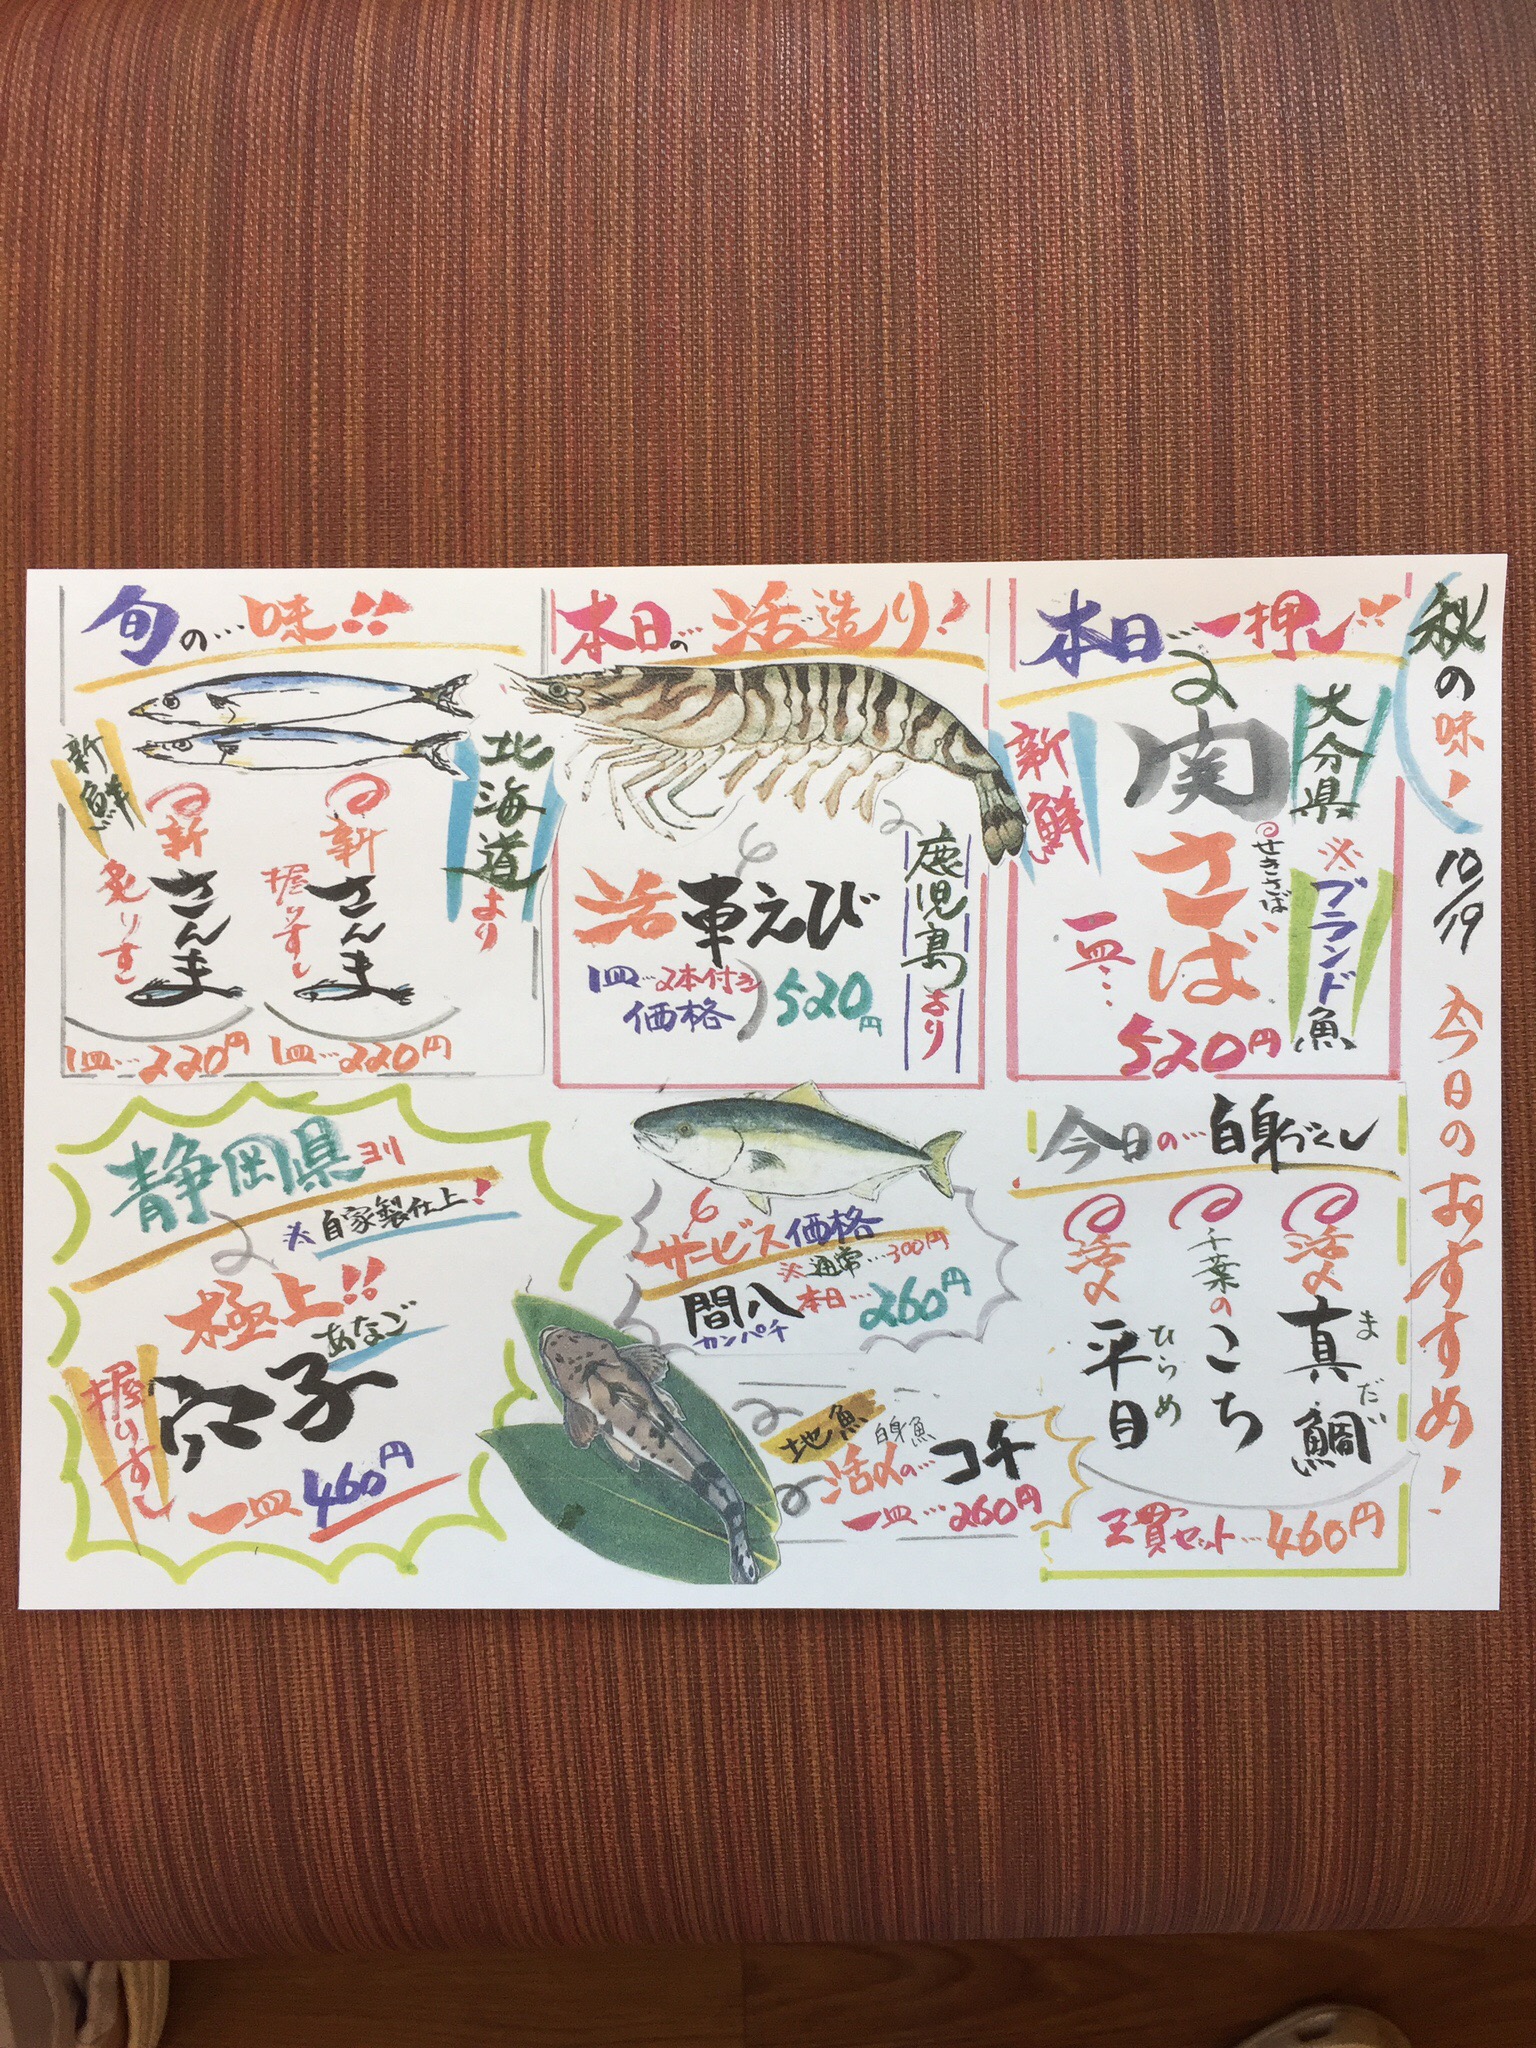 秋の味! 10/19 今日のおすすめ!
本日の一押し!!
大分県
※ブランド魚
関さば
せきさば
新鮮
一皿…
520円
本日の…活造り!
鹿児島より
活車えび
1皿…2本付き
価格
520円
旬の…味!!
北海道より
新鮮
新さんま
握りすし
1皿…220円
新さんま
炙りすし
1皿…220円
今日の…白身づくし
活〆真鯛
まだい
千葉のこち
活〆平目
ひらめ
三貫セット…460円
サービス価格
※通常…300円
本日…260円
間八
カンパチ
地魚
白身魚
活〆の…コチ
一皿…260円
静岡県ヨリ
※自家製仕上!
極上!!
あなご
穴子
握りすし
一皿460円